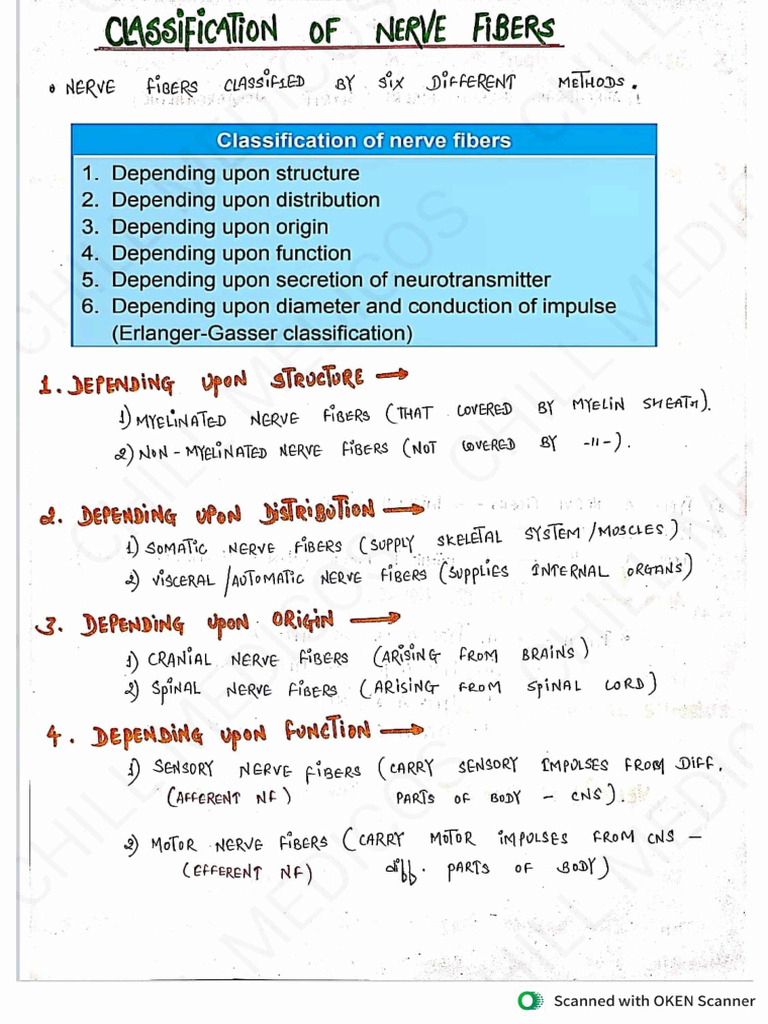 CLASSIFICATION OF NERVE FIBERS
• NERVE FIBERS CLASSIFIED BY SIX DIFFERENT METHODS.
Classification of nerve fibers
1. Depending upon structure
2. Depending upon distribution
3. Depending upon origin
4. Depending upon function
5. Depending upon secretion of neurotransmitter
6. Depending upon diameter and conduction of impulse
(Erlanger-Gasser classification)
1. DEPENDING UPON STRUCTURE →
1) MYELINATED NERVE FIBERS (THAT COVERED BY MYELIN SHEATH).
2) NON-MYELINATED NERVE FIBERS (NOT COVERED BY -11-).
2. DEPENDING UPON DISTRIBUTION →
1) SOMATIC NERVE FIBERS (SUPPLY SKELETAL SYSTEM/MUSCLES)
2) VISCERAL/AUTOMATIC NERVE FIBERS (SUPPLIES INTERNAL ORGANS)
3. DEPENDING UPON ORIGIN →
1) CRANIAL NERVE FIBERS (ARISING FROM BRAINS)
2) SPINAL NERVE FIBERS (ARISING FROM SPINAL CORD)
4. DEPENDING UPON FUNCTION →
1) SENSORY NERVE FIBERS (CARRY SENSORY IMPULSES FROM DIFF.
(AFFERENT NF) PARTS OF BODY - CNS).
2) MOTOR NERVE FIBERS (CARRY MOTOR IMPULSES FROM CNS -
(EFFERENT NF) diff. PARTS OF BODY)
CHILL MEDICOS
Scanned with OKEN Scanner